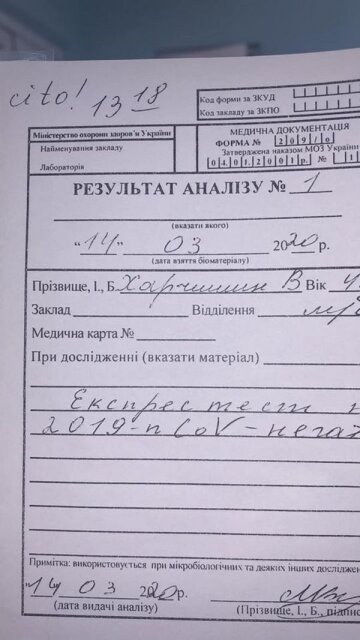 cito! 13 18
Код форми за ЗКУД
Код закладу за ЗКПО
Міністерство охорони здоров'я України
Найменування закладу
Лабораторія
МЕДИЧНА ДОКУМЕНТАЦІЯ
ФОРМА № 209/о
Затверджена наказом МОЗ України
04.01.2001р. № 1
РЕЗУЛЬТАТ АНАЛІЗУ № 1
(вказати якого)
"14" 03 2020 р.
(дата взяття біоматеріалу)
Прізвище, І., Б. Харчишин В Вік 4
Заклад Відділення
Медична карта №
При дослідженні (вказати матеріал)
Експрес тест
2019-n CoV - негат
Примітка: використовується при мікробіологічних та деяких інших дослідже
"14" 03 2020 р.
(дата видачі аналізу)
(Прізвище, І., Б., підпис